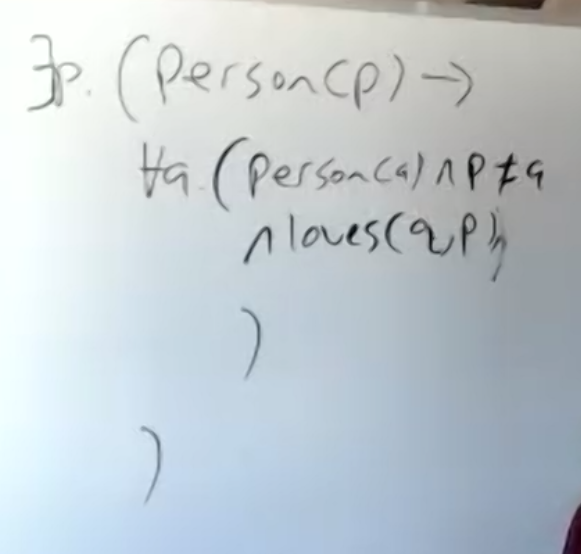 ∃p. (Person(p) →
∀q. (Person(q) ∧ p ≠ q
∧ loves(q, p)
)
)